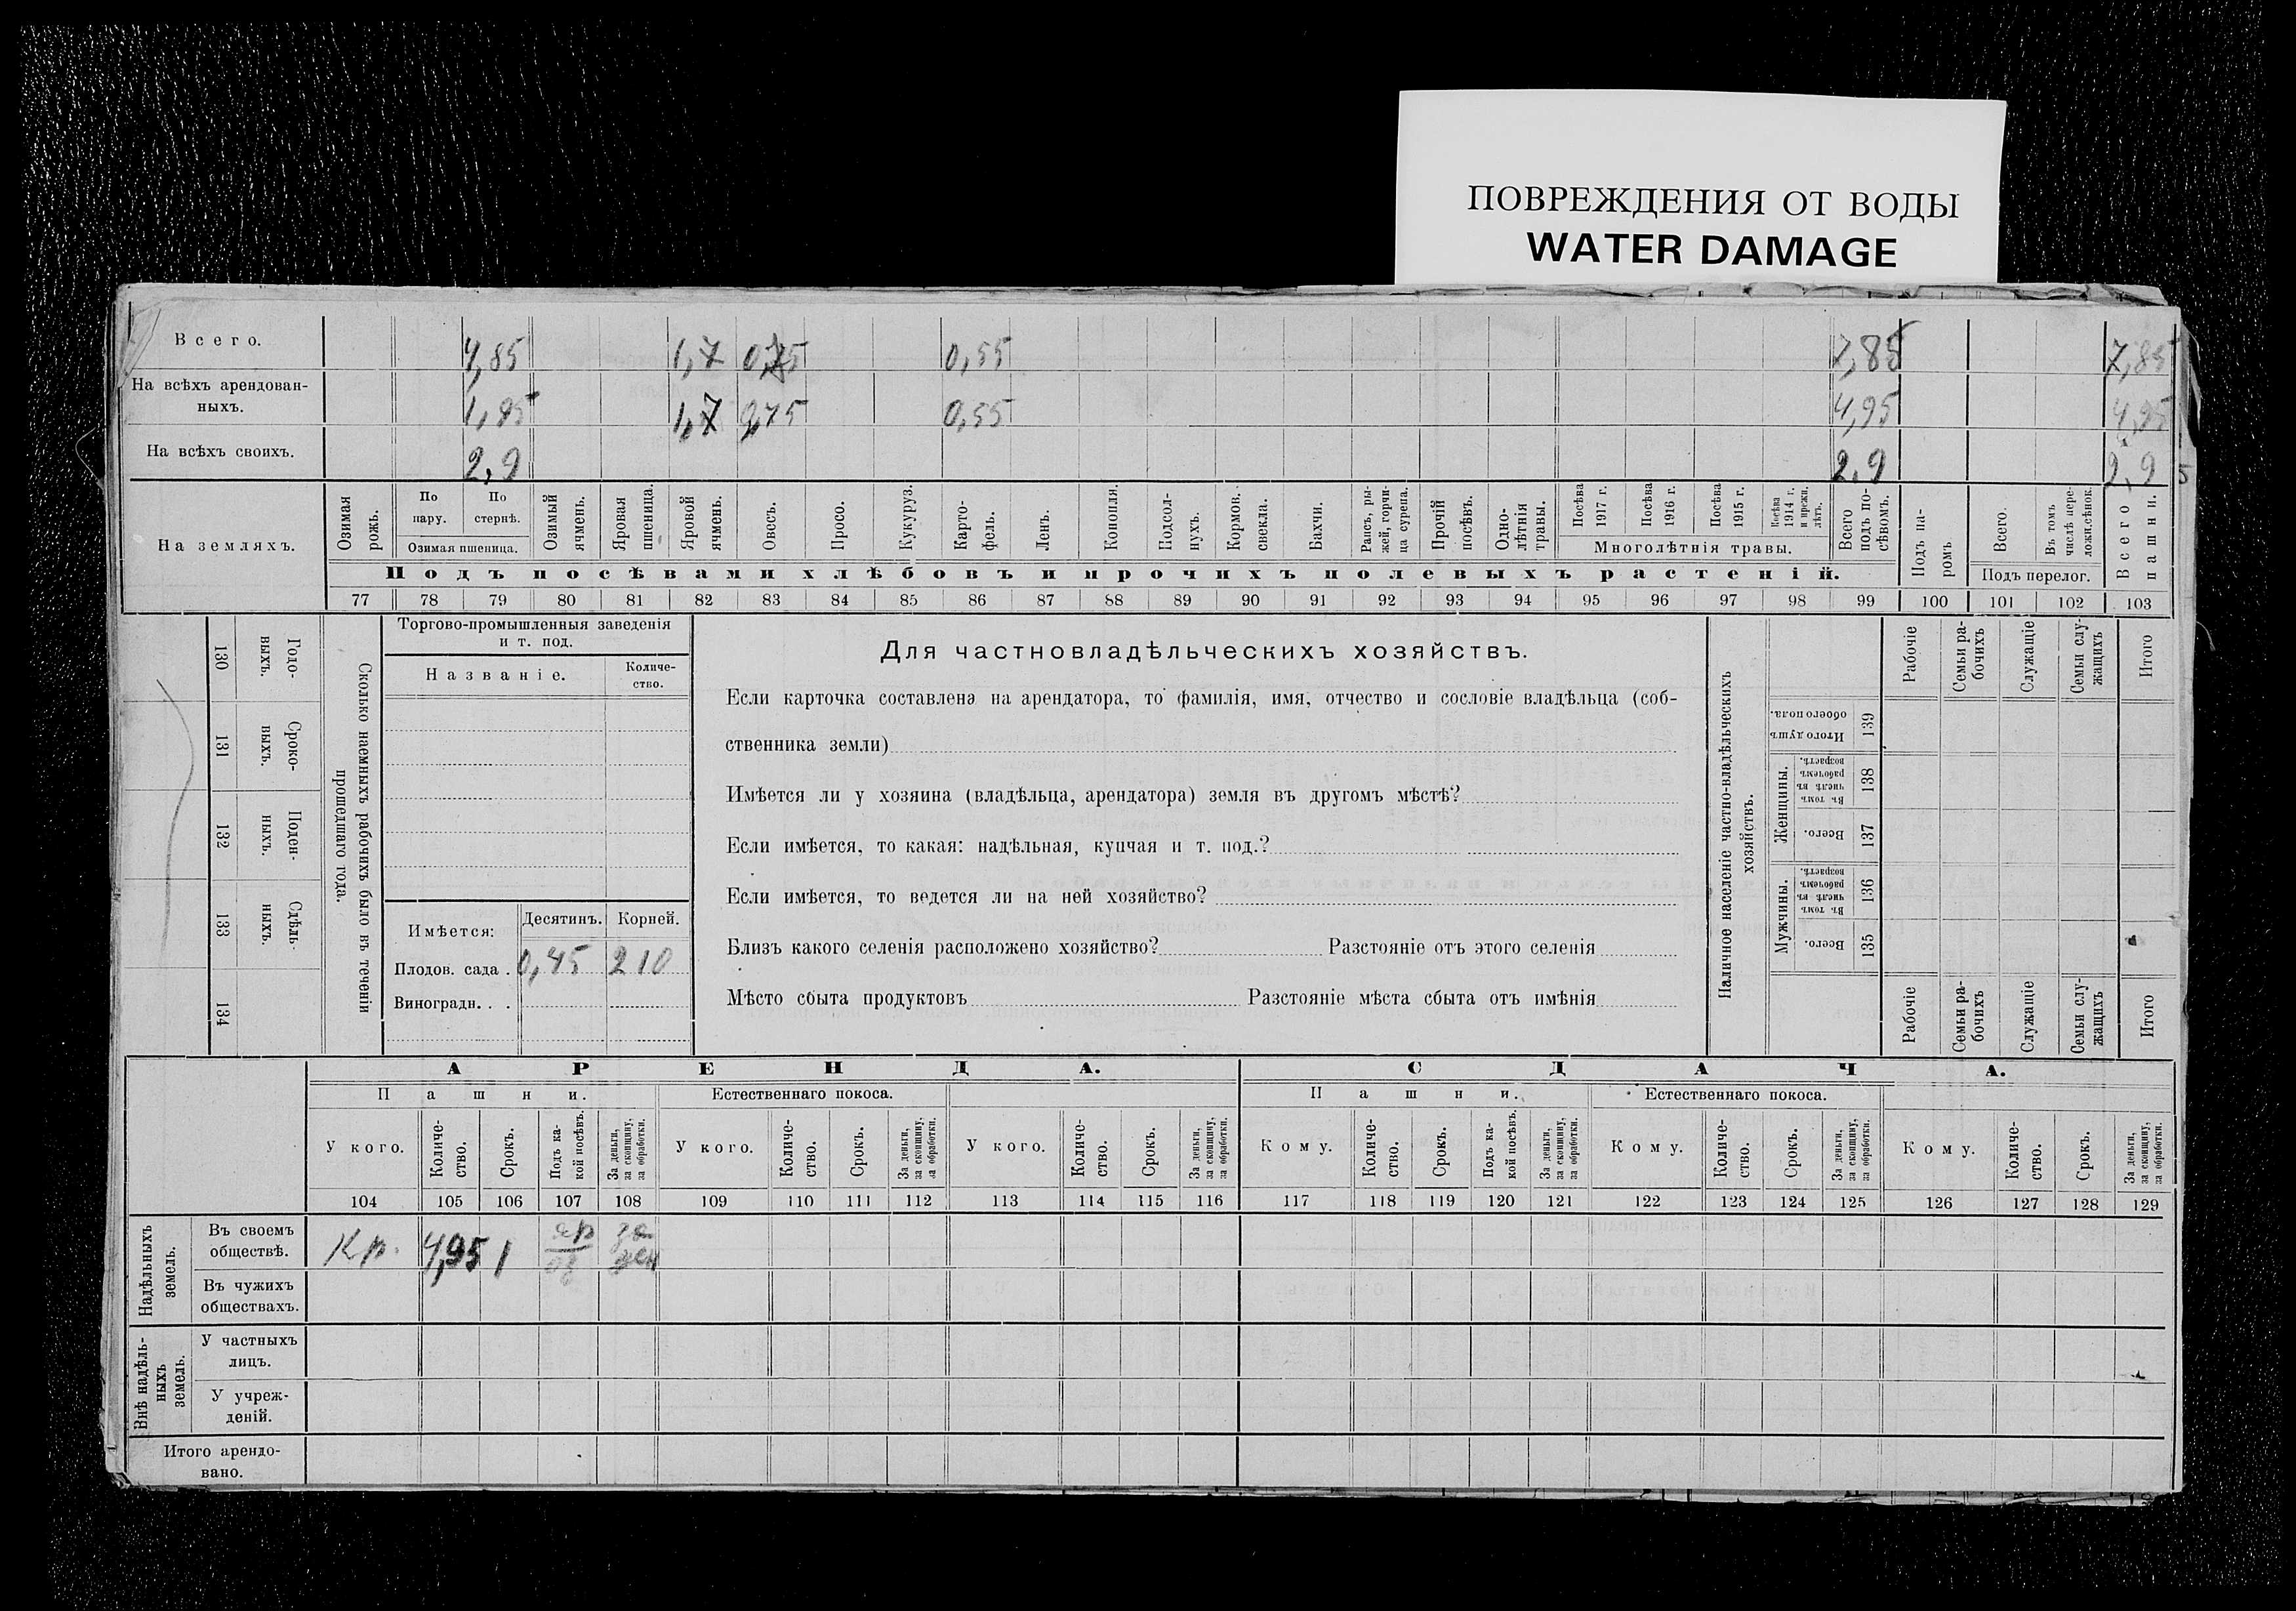 ПОВРЕЖДЕНИЯ ОТ ВОДЫ
WATER DAMAGE
Всего. 4,85 1,7 0,75 0,55 7,85 7,85
На всѣхъ арендован-
ныхъ. 1,95 1,7 0,75 0,55 4,95 4,95
На всѣхъ своихъ. 2,9 2,9 2,9
На земляхъ.
Озимая
рожь.
По
пару.
По
стернѣ.
Озимая пшеница.
Озимый
ячмень.
Яровая
пшеница.
Яровой
ячмень.
Овесъ.
Просо.
Кукуруз.
Карто-
фель.
Ленъ.
Конопля.
Подсол-
нухъ.
Кормов.
свекла.
Бахчи.
Рапсъ, ры-
жей, горчи-
ца сурепа.
Прочій
посѣвъ.
Одно-
лѣтнія
травы.
Посѣва
1917 г.
Посѣва
1916 г.
Посѣва
1915 г.
Посѣва
1914 г.
и прежн.
лѣтъ.
Многолѣтнія травы.
Всего
подъ по-
сѣвомъ.
Подъ па-
ромъ
Всего.
Въ томъ
числѣ пере-
ложн.сѣнок.
Подъ перелог.
Всего
пашни.
Подъ посѣвами хлѣбовъ и прочихъ полевыхъ растеній.
77 78 79 80 81 82 83 84 85 86 87 88 89 90 91 92 93 94 95 96 97 98 99 100 101 102 103
130 Годо-
ныхъ.
131 Сроко-
ныхъ.
132 Поден-
ныхъ.
133 Сдѣль-
ныхъ.
134
Сколько наемныхъ рабочихъ было въ теченіи
прошедшаго года.
Торгово-промышленныя заведенія
и т. под.
Названіе.
Количе-
ство.
Имѣется:
Десятинъ. Корней.
Плодов. сада . 0,45 210
Виноградн. . .
Для частновладѣльческихъ хозяйствъ.
Если карточка составлена на арендатора, то фамилія, имя, отчество и сословіе владѣльца (соб-
ственника земли)
Имѣется ли у хозяина (владѣльца, арендатора) земля въ другомъ мѣстѣ?
Если имѣется, то какая: надѣльная, купчая и т. под.?
Если имѣется, то ведется ли на ней хозяйство?
Близъ какого селенія расположено хозяйство? Разстояніе отъ этого селенія
Мѣсто сбыта продуктовъ Разстояніе мѣста сбыта отъ имѣнія
Наличное населеніе частно-владѣльческихъ
хозяйствъ.
Рабочіе
Семьи ра-
бочихъ
Служащіе
Семьи слу-
жащихъ
Итого
Итого душъ
обоего пола.
139
Женщины.
Въ томъ
числѣ въ
рабочемъ
возрастѣ.
138
Всего.
137
Мужчины.
Въ томъ
числѣ въ
рабочемъ
возрастѣ.
136
Всего.
135
Рабочіе
Семьи ра-
бочихъ
Служащіе
Семьи слу-
жащихъ
Итого
АРЕНДА. СДАЧА.
Пашни. Естественнаго покоса. Пашни. Естественнаго покоса.
У кого.
Количе-
ство.
Срокъ.
Подъ ка-
кой посѣвъ.
За деньги,
за скопщину,
за обработки.
У кого.
Количе-
ство.
Срокъ.
За деньги,
за скопщину,
за обработки.
У кого.
Количе-
ство.
Срокъ.
За деньги,
за скопщину,
за обработки.
Кому.
Количе-
ство.
Срокъ.
Подъ ка-
кой посѣвъ.
За деньги,
за скопщину,
за обработки.
Кому.
Количе-
ство.
Срокъ.
За деньги,
за скопщину,
за обработки.
Кому.
Количе-
ство.
Срокъ.
За деньги,
за скопщину,
за обработки.
104 105 106 107 108 109 110 111 112 113 114 115 116 117 118 119 120 121 122 123 124 125 126 127 128 129
Надѣльныхъ
земель.
Въ своемъ
обществѣ.
Кр. 4,95 1 яр оз за ден
Въ чужихъ
обществахъ.
Внѣ надѣль-
ныхъ
земель.
У частныхъ
лицъ.
У учреж-
деній.
Итого арендо-
вано.